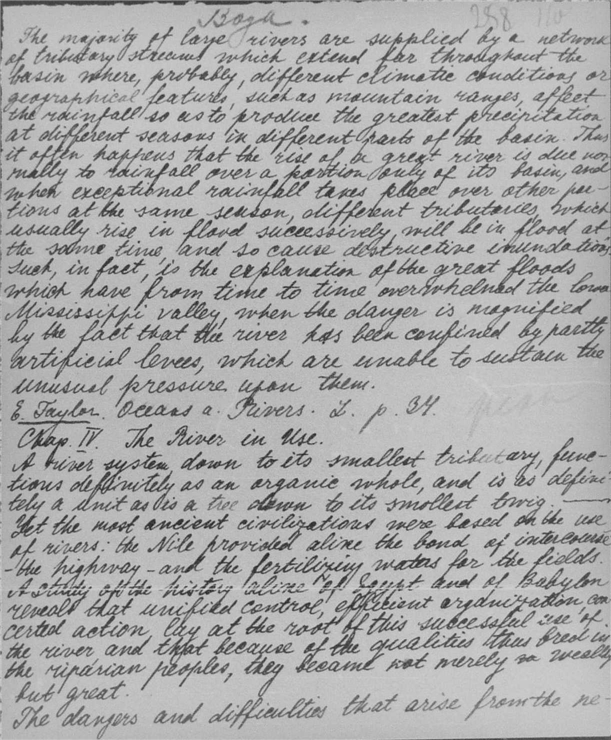 Вода.
288 110
The majority of large rivers are supplied by a network
of tributary streams which extend far throughout the
basin where, probably, different climatic conditions or
geographical features, such as mountain ranges, affect
the rainfall so as to produce the greatest precipitation
at different seasons in different parts of the basin. Thus
it often happens that the rise of a great river is due nor-
mally to rainfall over a portion only of its basin, and
when exceptional rainfall takes place over other por-
tions at the same season, different tributaries, which
usually rise in flood successively, will be in flood at
the same time, and so cause destructive inundations
such, in fact, is the explanation of the great floods
which have from time to time overwhelmed the lower
Mississippi valley, when the danger is magnified
by the fact that the river has been confined by partly
artificial levees, which are unable to sustain the
unusual pressure upon them.
E. Taylor. Oceans a. Rivers. L. p. 34.
Chap. IV. The River in Use.
A river system, down to its smallest tributary, func-
tions definitely as an organic whole, and is as defini-
tely a unit as is a tree down to its smollest twig.
Yet the most ancient civilizations were based on the use
of rivers: the Nile provided alike the bond of intercourse
- the highway - and the fertilizing waters for the fields.
A study of the history alike of Egypt and of Babylon
reveals that unified control, efficient organization, con-
certed action, lay at the root of this successful use of
the river and that because of the qualities thus bred in
the riparian peoples, they became not merely wealthy
but great.
The dangers and difficulties that arise from the ne-